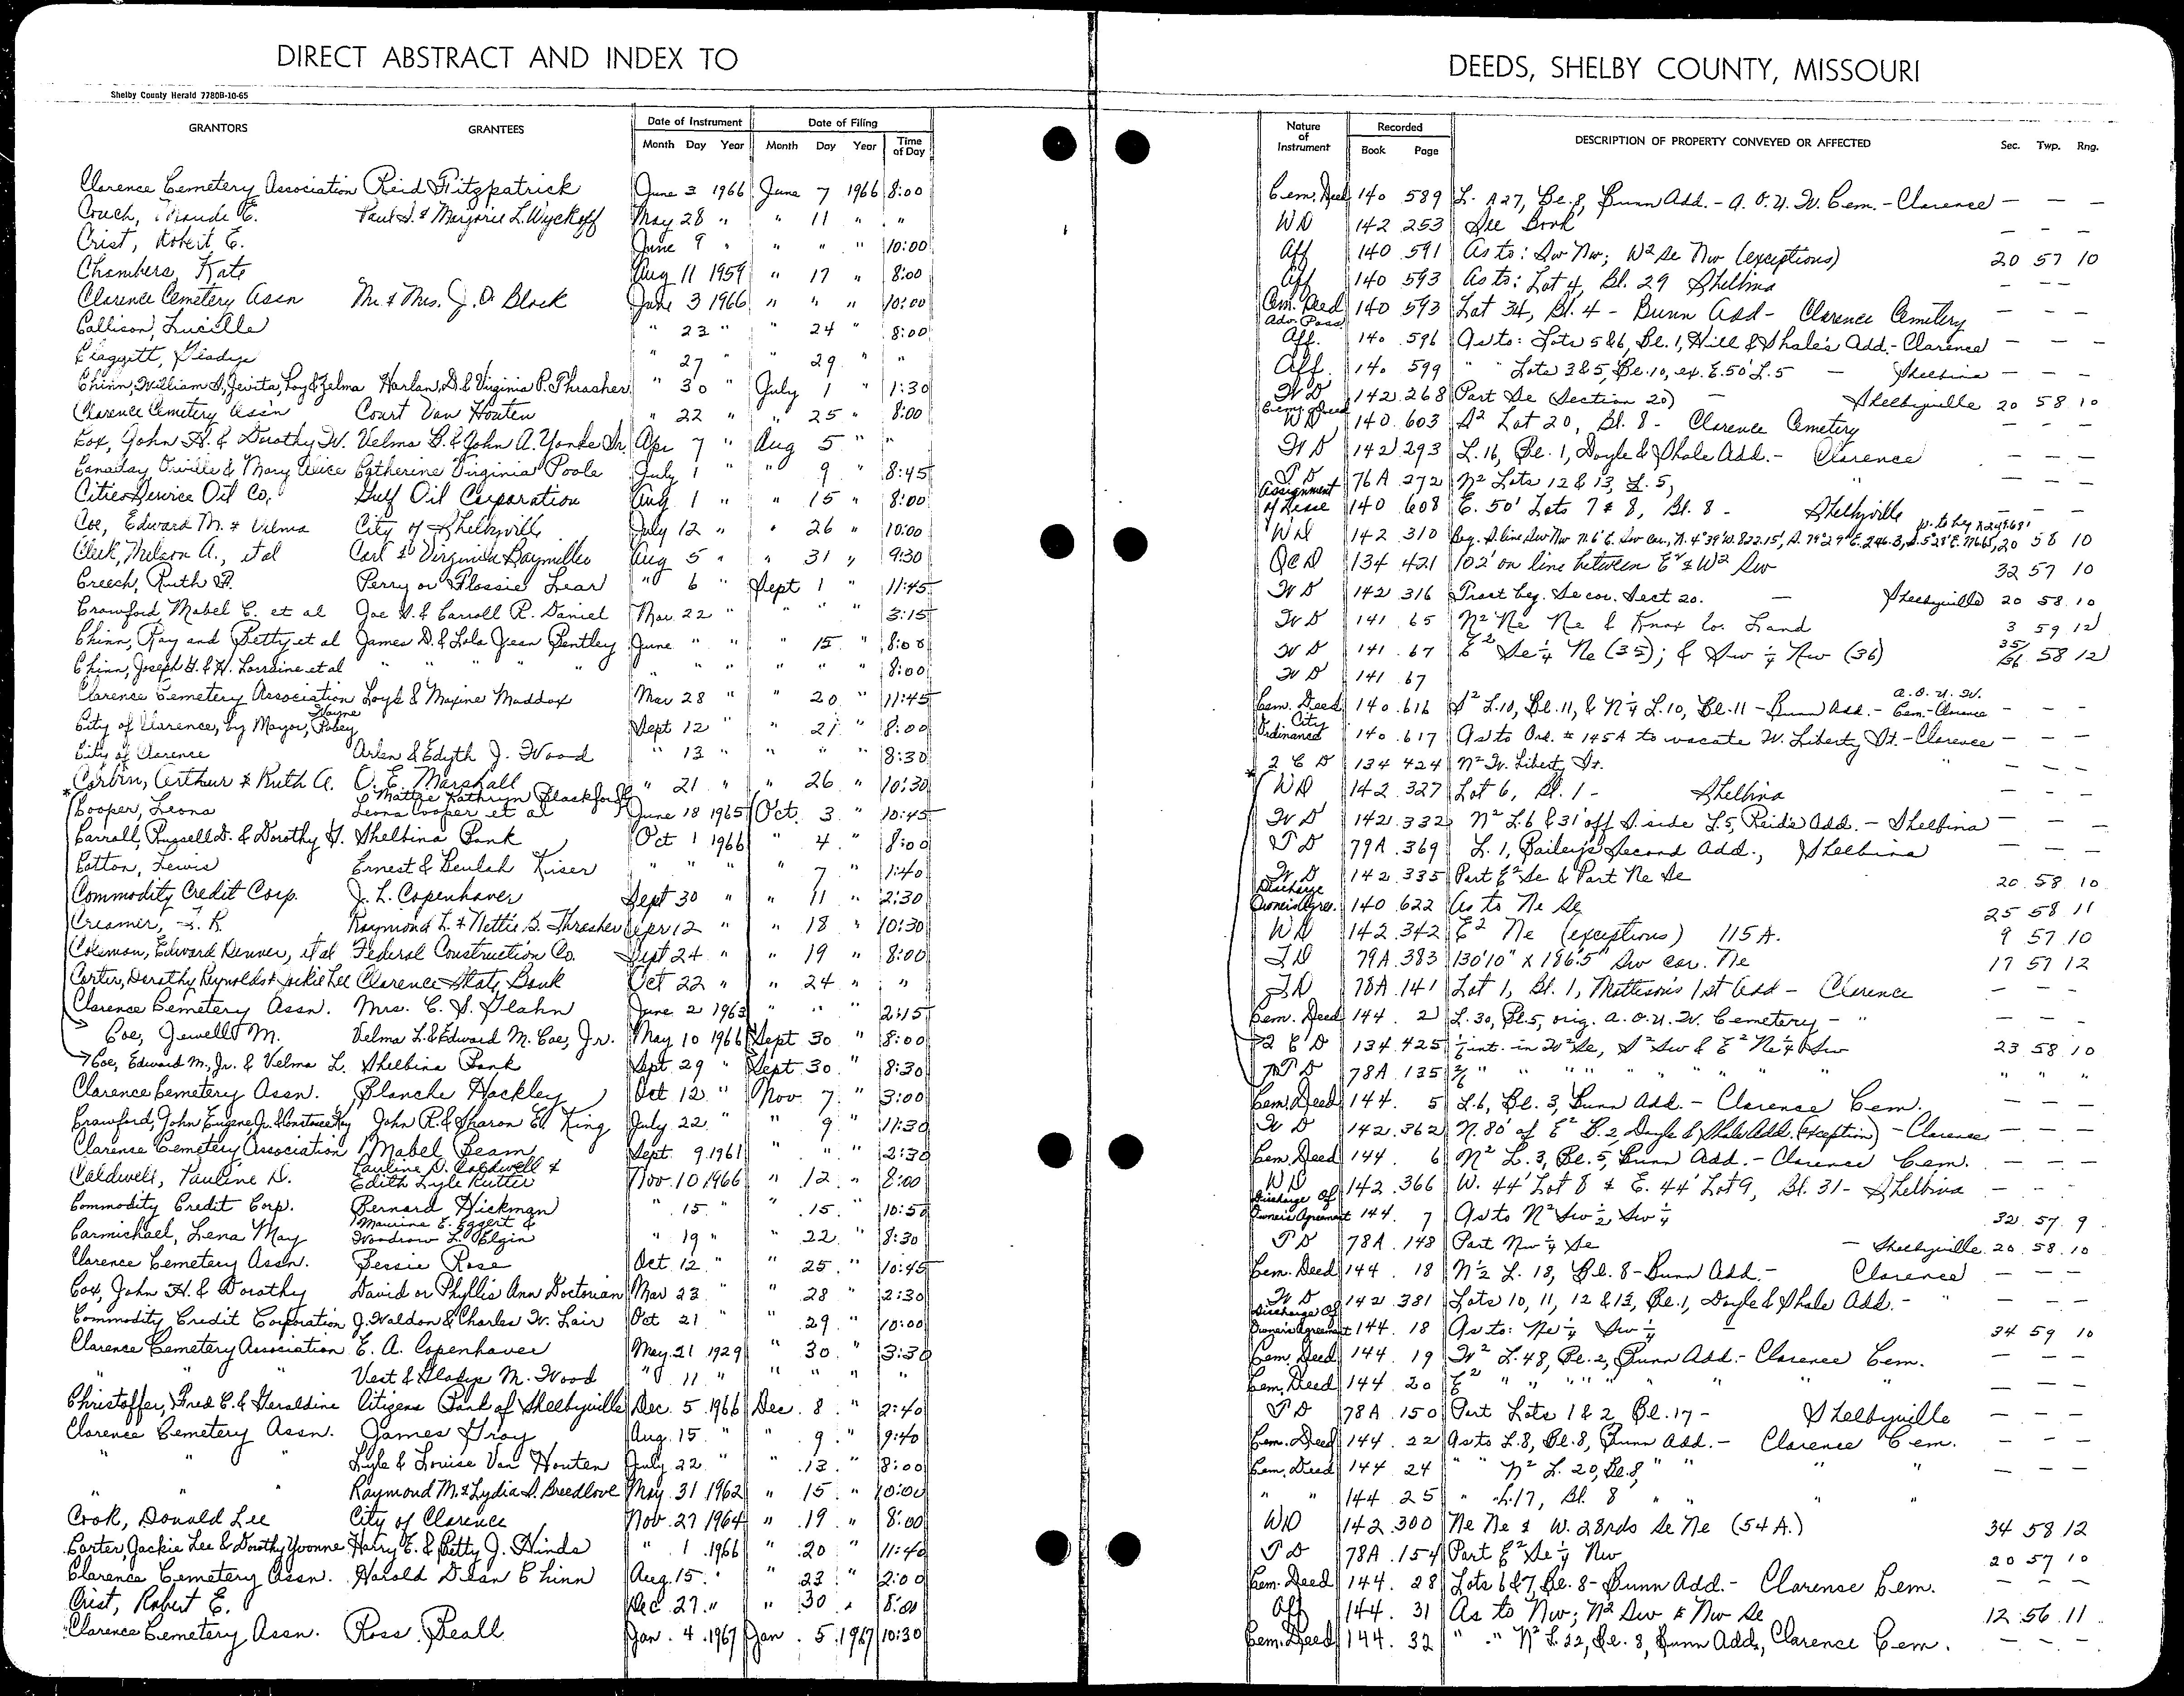 DIRECT ABSTRACT AND INDEX TO
Shelby County Herald 7780B-10-65
GRANTORS GRANTEES Date of Instrument Date of Filing
Month Day Year Month Day Year Time of Day
Clarence Cemetery Association Reid Fitzpatrick June 3 1966 June 7 1966 8:00
Couch, Maude E. Paul S. & Marjorie L. Wyckoff May 28 " " 11 " "
Crist, Robert E. June 9 " " " " 10:00
Chambers, Kate Aug 11 1959 " 17 " 8:00
Clarence Cemetery Assn Mr. & Mrs. J. O. Block June 3 1966 " " " 10:00
Callison, Lucille " 23 " " 24 " 8:00
Claggett, Gladys " 27 " " 29 " "
Chinn, William S, Jevita, Loy & Zelma Harlan, D. & Virginia P. Thrasher " 30 " July 1 " 1:30
Clarence Cemetery Assn Court Van Houten " 22 " " 25 " 8:00
Cox, John H. & Dorothy W. Velma B. & John A. Yonke Jr. Apr 7 " Aug 5 " "
Canaday Orville & Mary Alice Catherine Virginia Poole July 1 " " 9 " 8:45
Cities Service Oil Co. Gulf Oil Corporation Aug 1 " " 15 " 8:00
Coe, Edward M. & Velma City of Shelbyville July 12 " " 26 " 10:00
Cleek, Nelson A., et al Carl & Virginia Baymiller Aug 5 " " 31 " 9:30
Creech, Ruth A. Perry or Flossie Lear " 6 " Sept 1 " 11:45
Crawford, Mabel C. et al Joe H. & Carroll R. Daniel Mar. 22 " " " 3:15
Chinn, Ray and Betty, et al James D. & Lola Jean Bentley June " " " 15 " 8:00
Chinn, Joseph G. & H. Lorraine et al " " " " " " " " 8:00
Clarence Cemetery Association Loyd & Maxine Maddox Mar 28 " " 20 " 11:45
City of Clarence, by Mayor, Wayne Robey Sept 12 " " 21 " 8:00
City of Clarence Arlen & Edyth J. Wood " 13 " " " " 8:30
* Corbin, Arthur & Ruth A. O. E. Marshall " 21 " " 26 " 10:30
Cooper, Leona Mattie Kathryn Blackford Leona Cooper et al June 18 1965 Oct. 3 " 10:45
Carroll, Russell D. & Dorothy G. Shelbina Bank Oct 1 1966 " 4 " 8:00
Cotton, Lewis Ernest & Beulah Kiser " " " " 7 " 1:40
Commodity Credit Corp. J. L. Copenhaver Sept 30 " " 11 " 2:30
Creamer, J. R. Raymond L. & Nettie B. Thrasher Apr 12 " " 18 " 10:30
Coleman, Edward Denver, et al Federal Construction Co. Sept 24 " " 19 " 8:00
Carter, Dorothy Reynolds & Jackie Lee Clarence State Bank Oct 22 " " 24 " "
Clarence Cemetery Assn. Mrs. C. S. Glahn June 2 1963 " " " 2:15
Coe, Jewell M. Velma L. & Edward M. Coe, Jr. May 10 1966 Sept 30 " 8:00
Coe, Edward M., Jr. & Velma L. Shelbina Bank Sept. 29 " Sept. 30 " 8:30
Clarence Cemetery Assn. Blanche Hackley Oct 12 " Nov. 7 " 3:00
Crawford, John Eugene Jr. & Constance Kay John R. & Sharon E. King July 22 " " 9 " 11:30
Clarence Cemetery Association Mabel Beam Sept. 9 1961 " " " 2:30
Caldwell, Pauline D. Pauline D. Caldwell & Edith Lyle Rutter Nov. 10 1966 " 12 " 8:00
Commodity Credit Corp. Bernard Hickman " 15 " " 15 " 10:50
Carmichael, Lena May Maurine E. Eggert & Woodrow L. Elgin " 19 " " 22 " 8:30
Clarence Cemetery Assn. Bessie Rose Oct. 12 " " 25 " 10:45
Cox, John H. & Dorothy David or Phyllis Ann Doctorian Mar 23 " " 28 " 2:30
Commodity Credit Corporation J. Waldon & Charles W. Lair Oct 21 " " 29 " 10:00
Clarence Cemetery Association E. A. Copenhaver May 21 1929 " 30 " 3:30
" " Vest & Gladys M. Wood " 11 " " " " "
Christoffer, Fred C. & Geraldine Citizens Bank of Shelbyville Dec. 5 1966 Dec. 8 " 2:40
Clarence Cemetery Assn. James Gray Aug. 15 " " 9 " 9:40
" " " Lyle & Louise Van Houten July 22 " " 13 " 8:00
" " " Raymond M. & Lydia S. Breedlove May 31 1962 " 15 " 10:00
Cook, Donald Lee City of Clarence Nov. 27 1964 " 19 " 8:00
Carter, Jackie Lee & Dorothy Yvonne Harry E. & Betty J. Hinds " 1 1966 " 20 " 11:40
Clarence Cemetery Assn. Harold Dean Chinn Aug. 15 " " 23 " 2:00
Crist, Robert E. Dec 27 " " 30 " 8:00
Clarence Cemetery Assn. Ross Beall Jan. 4 1967 Jan. 5 1967 10:30
DEEDS, SHELBY COUNTY, MISSOURI
Nature of Instrument Recorded Book Page DESCRIPTION OF PROPERTY CONVEYED OR AFFECTED Sec. Twp. Rng.
Cem. Deed 140 589 L. 127, Bl. 8, Bunn Add. - A. O. U. W. Cem. - Clarence — — —
WD 142 253 See Book — — —
Aff 140 591 As to: Sw Nw; W2 Se Nw (exceptions) 20 57 10
Aff 140 593 As to: Lot 4, Bl. 29 Shelbina — — —
Cem. Deed 140 593 Lot 34, Bl. 4 - Bunn Add - Clarence Cemetery — — —
Adv. Poss. Aff. 140 596 As to: Lots 5 & 6, Bl. 1, Hill & Shale's Add. - Clarence — — —
Aff. 140 599 " " Lots 3 & 5, Bl. 10, ex. E. 50' L. 5 — Shelbina — — —
WD 142 268 Part Se (Section 20) — Shelbyville 20 58 10
Cemy Deed WD 140 603 S2 Lot 20, Bl. 8 - Clarence Cemetery — — —
WD 142 293 L. 16, Bl. 1, Doyle & Shale Add. - Clarence — — —
TD 76A 272 N2 Lots 12 & 13, L. 5, " — — —
Assignment of Lease 140 608 E. 50' Lots 7 & 8, Bl. 8 - Shelbyville — — —
WD 142 310 Beg. S. line Sw Nw 20 58 10
QCD 134 421 102' on line between E2 & W2 Sw 32 57 10
WD 142 316 Tract beg. Se cor. Sect 20. — Shelbyville 20 58 10
WD 141 65 N2 Ne Ne & Knox Co. Land 3 59 12
WD 141 67 E2 Se 1/4 Ne (35); & Sw 1/4 Nw (36) 35/36 58 12
WD 141 67
Cem. Deed 140 616 S2 L. 10, Bl. 11, & N 1/4 L. 10, Bl. 11 - Bunn Add. - A. O. U. W. Cem. - Clarence — — —
City Ordinance 140 617 As to Ord. # 145A to vacate W. Liberty St. - Clarence — — —
* 2 C D 134 424 N2 W. Liberty St. " — — —
WD 142 327 Lot 6, Bl. 1 - Shelbina — — —
WD 142 332 N2 L. 6 & 31' off S. side L. 5, Reid's Add. - Shelbina — — —
TD 79A 369 L. 1, Bailey's Second Add., Shelbina — — —
WD 142 335 Part E2 Se & Part Ne Se 20 58 10
Discharge Owners Agree. 140 622 As to Ne Se 25 58 11
WD 142 342 E2 Ne (exceptions) 115 A. 9 57 10
TD 79A 383 130'10" X 186'5" Sw cor. Ne 17 57 12
TD 78A 141 Lot 1, Bl. 1, Mattison's 1st Add - Clarence — — —
Cem. Deed 144 2 L. 30, Bl. 5, orig. A. O. U. W. Cemetery - " — — —
2 C D 134 425 int. in W2 Se, S2 Sw & E2 Ne 1/4 Sw 23 58 10
TD 78A 135 " " " " " " " " " "
Cem. Deed 144 5 L. 6, Bl. 3, Bunn Add. - Clarence Cem. — — —
WD 142 362 N. 80' of E2 B. 2, Doyle & Shale Add. (exception) - Clarence — — —
Cem. Deed 144 6 N2 L. 3, Bl. 5, Bunn Add. - Clarence Cem. — — —
WD 142 366 W. 44' Lot 8 & E. 44' Lot 9, Bl. 31 - Shelbina — — —
Discharge of Owner's Agreement 144 7 As to N2 Sw 1/2 Sw 1/4 32 57 9
TD 78A 148 Part Nw 1/4 Se — Shelbyville 20 58 10
Cem. Deed 144 18 N 1/2 L. 18, Bl. 8 - Bunn Add. - Clarence — — —
WD 142 381 Lots 10, 11, 12 & 13, Bl. 1, Doyle & Shale Add. - " — — —
Discharge of Owner's Agreement 144 18 As to: Ne 1/4 Sw 1/4 34 59 10
Cem. Deed 144 19 W2 L. 48, Bl. 2, Bunn Add. - Clarence Cem. — — —
Cem. Deed 144 20 E2 " " " " " " " — — —
TD 78A 150 Part Lots 1 & 2, Bl. 17 - Shelbyville — — —
Cem. Deed 144 22 As to L. 8, Bl. 8, Bunn Add. - Clarence Cem. — — —
Cem. Deed 144 24 " " N2 L. 20, Bl. 8, " " " " — — —
" " 144 25 " L. 17, Bl. 8 " " " "
WD 142 300 Ne Ne & W. 28 rds Se Ne (54 A.) 34 58 12
TD 78A 154 Part E2 Se 1/4 Nw 20 57 10
Cem. Deed 144 28 Lots 6 & 7, Bl. 8 - Bunn Add. - Clarence Cem. — — —
Aff 144 31 As to Nw; N2 Sw & Nw Se 12 56 11
Cem. Deed 144 32 " " N2 L. 22, Bl. 8, Bunn Add, Clarence Cem. — — —